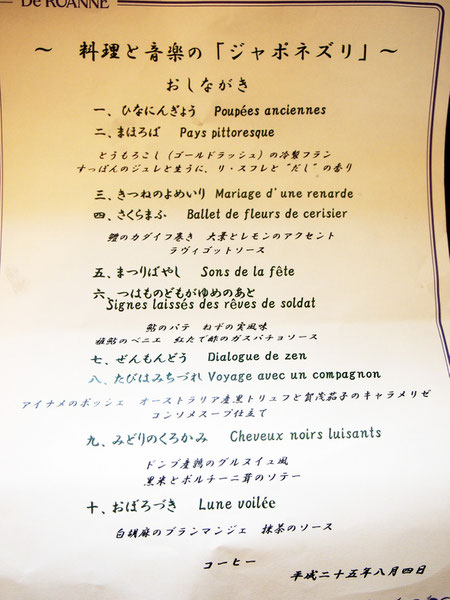 De ROANNE
～ 料理と音楽の「ジャポネズリ」～
おしながき
一、ひなにんぎょう Poupées anciennes
二、まほろば Pays pittoresque
とうもろこし（ゴールドラッシュ）の冷製フラン
すっぽんのジュレと生うに、リ・スフレと“だし”の香り
三、きつねのよめいり Mariage d'une renarde
四、さくらまふ Ballet de fleurs de cerisier
鱧のカダイフ巻き 大葉とレモンのアクセント
ラヴィゴットソース
五、まつりばやし Sons de la fête
六、つはものどもがゆめのあと
Signes laissés des rêves de soldat
鮎のパテ ねずの実風味
稚鮎のベニエ 紅たで酢のガスパチョソース
七、ぜんもんどう Dialogue de zen
八、たびはみちづれ Voyage avec un compagnon
アイナメのポッシェ オーストラリア産黒トリュフと賀茂茄子のキャラメリゼ
コンソメスープ仕立て
九、みどりのくろかみ Cheveux noirs luisants
ドンブ産鶉のグルヌイユ風
黒米とポルチーニ茸のソテー
十、おぼろづき Lune voilée
白胡麻のブランマンジェ 抹茶のソース
コーヒー
平成二十五年八月四日